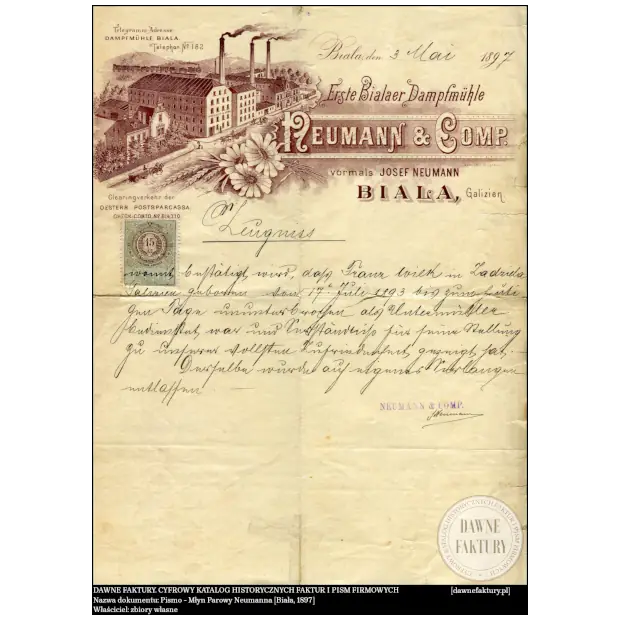 Telegramm-Adresse
DAMPFMÜHLE BIALA.
Telephon Nº 162
Biala, den 3 Mai 1897
Erste Bialaer Dampfmühle
NEUMANN & COMP.
vormals JOSEF NEUMANN
BIALA, Galizien
Clearingverkehr der
OESTERR. POSTSPARCASSA
CHECK-CONTO Nº
Zeugniss
15
womit bestätigt wird, daß Franz Wilk in
Galizien geboren vom 17t Juli 1893 bis zum heuti-
gen Tage ununterbrochen als Untermüller
bedienstet war und Verständniss für seine Stellung
zu unserer vollsten Zufriedenheit gezeigt hat.
Derselbe wurde auf eigenes Verlangen
entlassen
NEUMANN & COMP.
Neumann
DAWNE FAKTURY
DAWNE FAKTURY. CYFROWY KATALOG HISTORYCZNYCH FAKTUR I PISM FIRMOWYCH [dawnefaktury.pl]
Nazwa dokumentu: Pismo - Młyn Parowy Neumanna [Biała, 1897]
Właściciel: zbiory własne